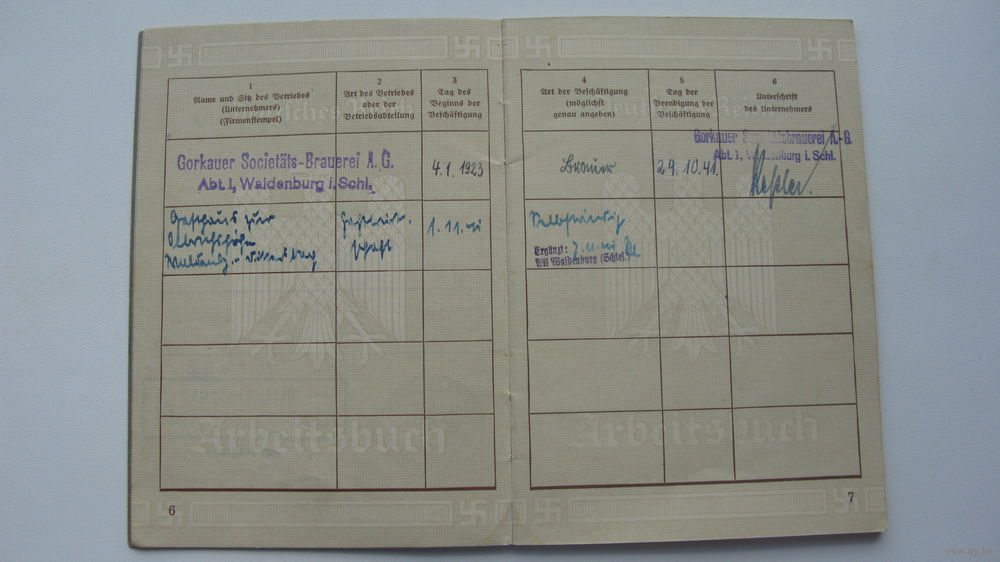 1
Name und Sitz des Betriebes
(Unternehmers)
(Firmenstempel)
2
Art des Betriebes
oder der
Betriebsabteilung
3
Tag des
Beginns der
Beschäftigung
4
Art der Beschäftigung
(möglichst
genau angeben)
5
Tag der
Beendigung der
Beschäftigung
6
Unterschrift
des Unternehmers
Gorkauer Societäts-Brauerei A.G.
Abt. I, Waldenburg i. Schl.
4.1.1923
Brauer
29.10.41.
Gorkauer Societätsbrauerei A.-G.
Abt. I, Waldenburg i. Schl.
Gasthaus zur
1.11.41
Selbständig
Ergänzt: 7.11.41
AA Waldenburg (Schles.)
Arbeitsbuch
Arbeitsbuch
6
7
www.ay.by